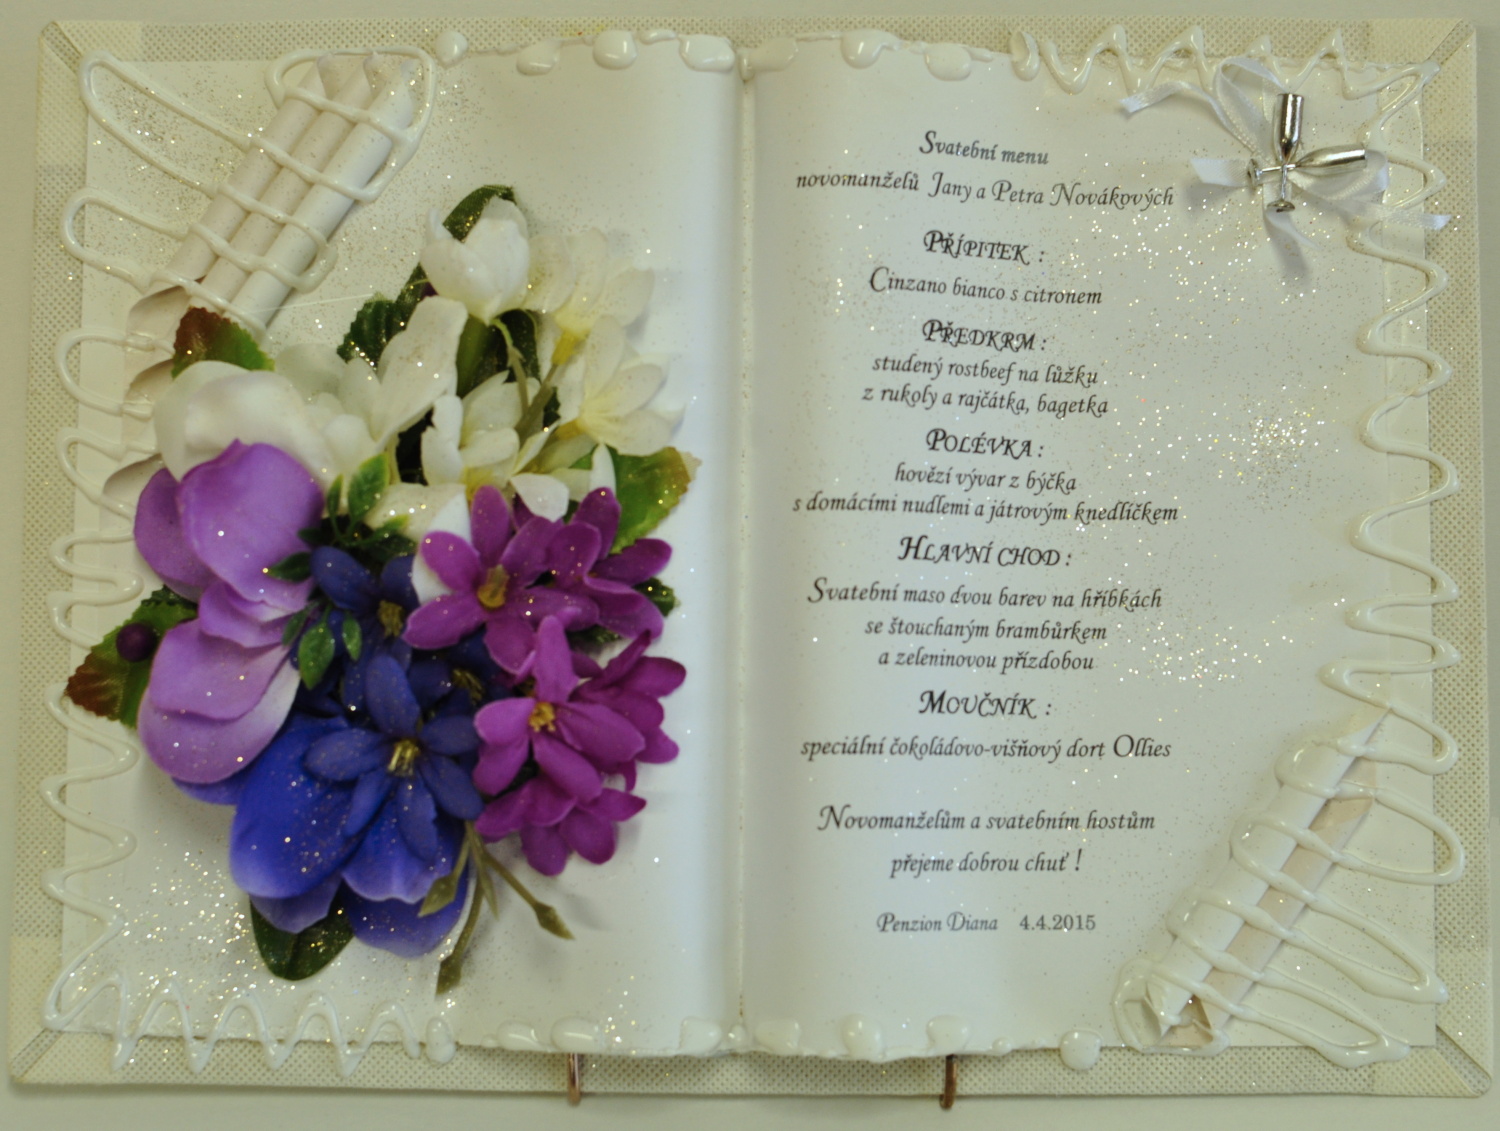 Svatební menu
novomanželů Jany a Petra Novákových
PŘÍPITEK :
Cinzano bianco s citronem
PŘEDKRM :
studený rostbeef na lůžku
z rukoly a rajčátka, bagetka
POLÉVKA :
hovězí vývar z býčka
s domácími nudlemi a játrovým knedlíčkem
HLAVNÍ CHOD :
Svatební maso dvou barev na hříbkách
se štouchaným brambůrkem
a zeleninovou přízdobou
MOUČNÍK :
speciální čokoládovo-višňový dort Ollies
Novomanželům a svatebním hostům
přejeme dobrou chuť !
Penzion Diana 4.4.2015